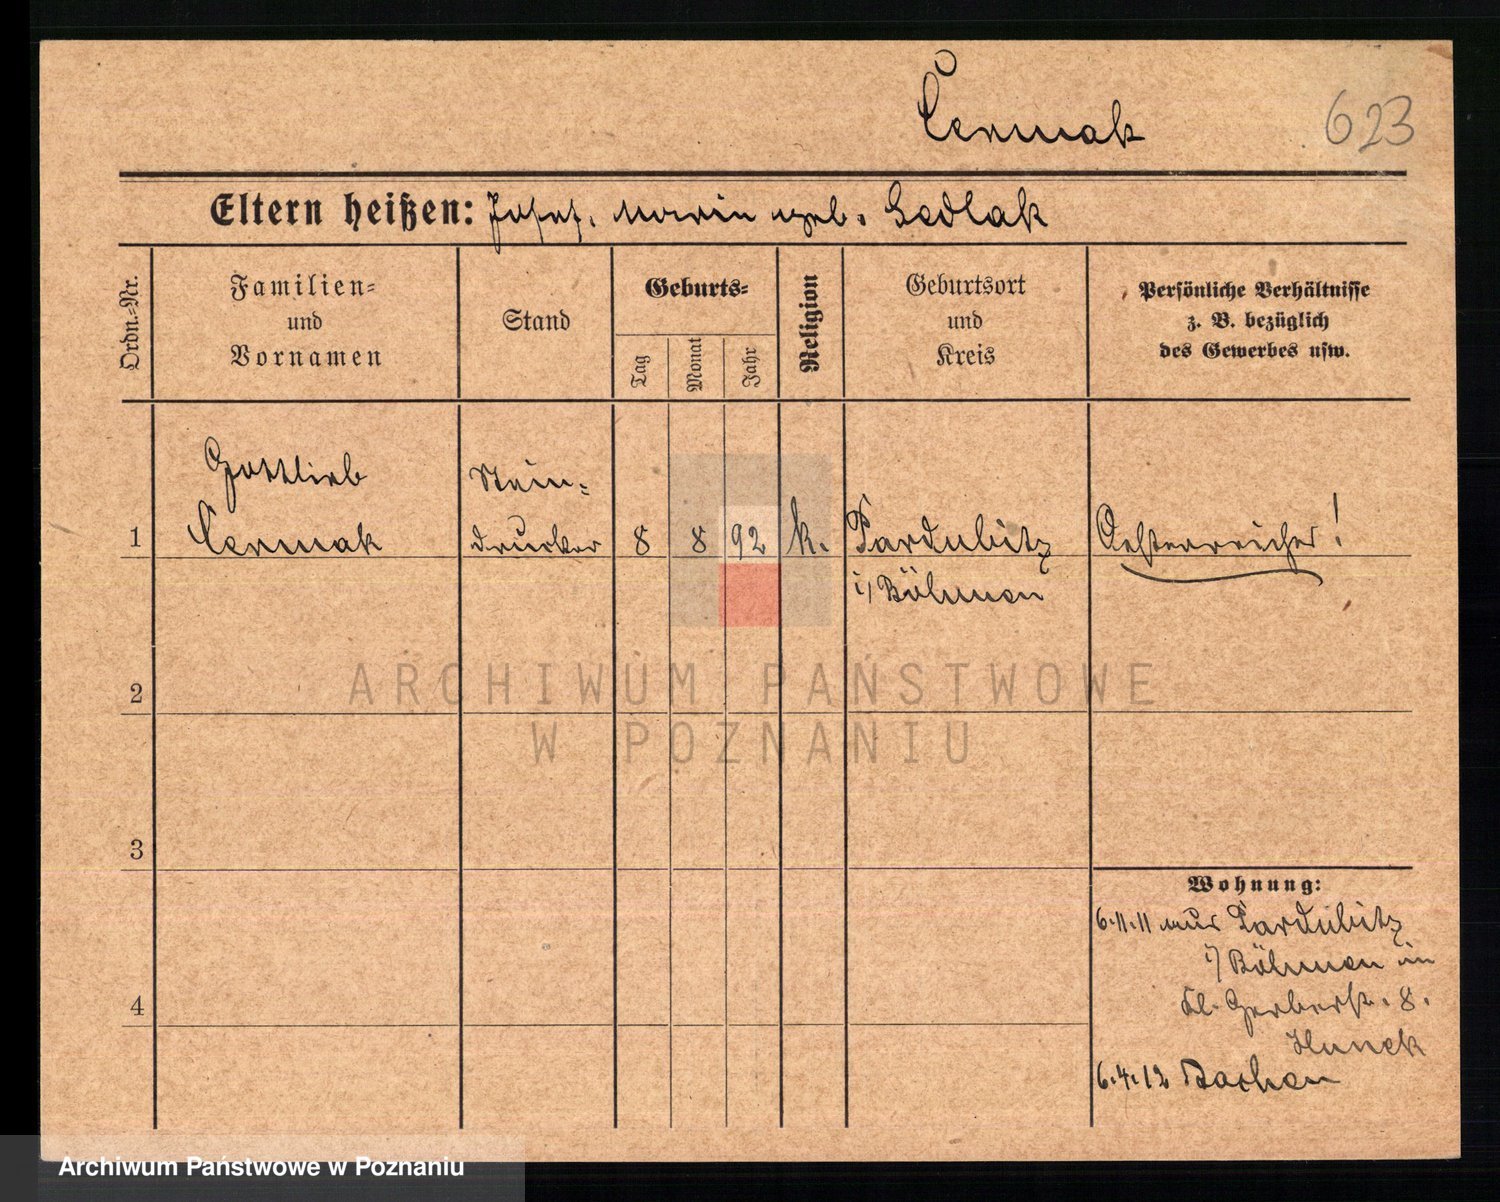 Čermak
623
Eltern heißen: Josef. Marie geb. Sedlak
Ordn.-Nr.
Familien-
und
Vornamen
Stand
Geburts-
Tag
Monat
Jahr
Religion
Geburtsort
und
Kreis
Persönliche Verhältnisse
z. B. bezüglich
des Gewerbes usw.
Gottlieb
Čermak
Stein-
drucker
1
8
8
92
k.
Pardubitz
i/Böhmen
Oesterreicher!
2
3
4
Wohnung:
6.11.11 aus Pardubitz
i/Böhmen in
Kl. Gerberstr. 8.
Hunek
6.4.12
ARCHIWUM PAŃSTWOWE
W POZNANIU
Archiwum Państwowe w Poznaniu